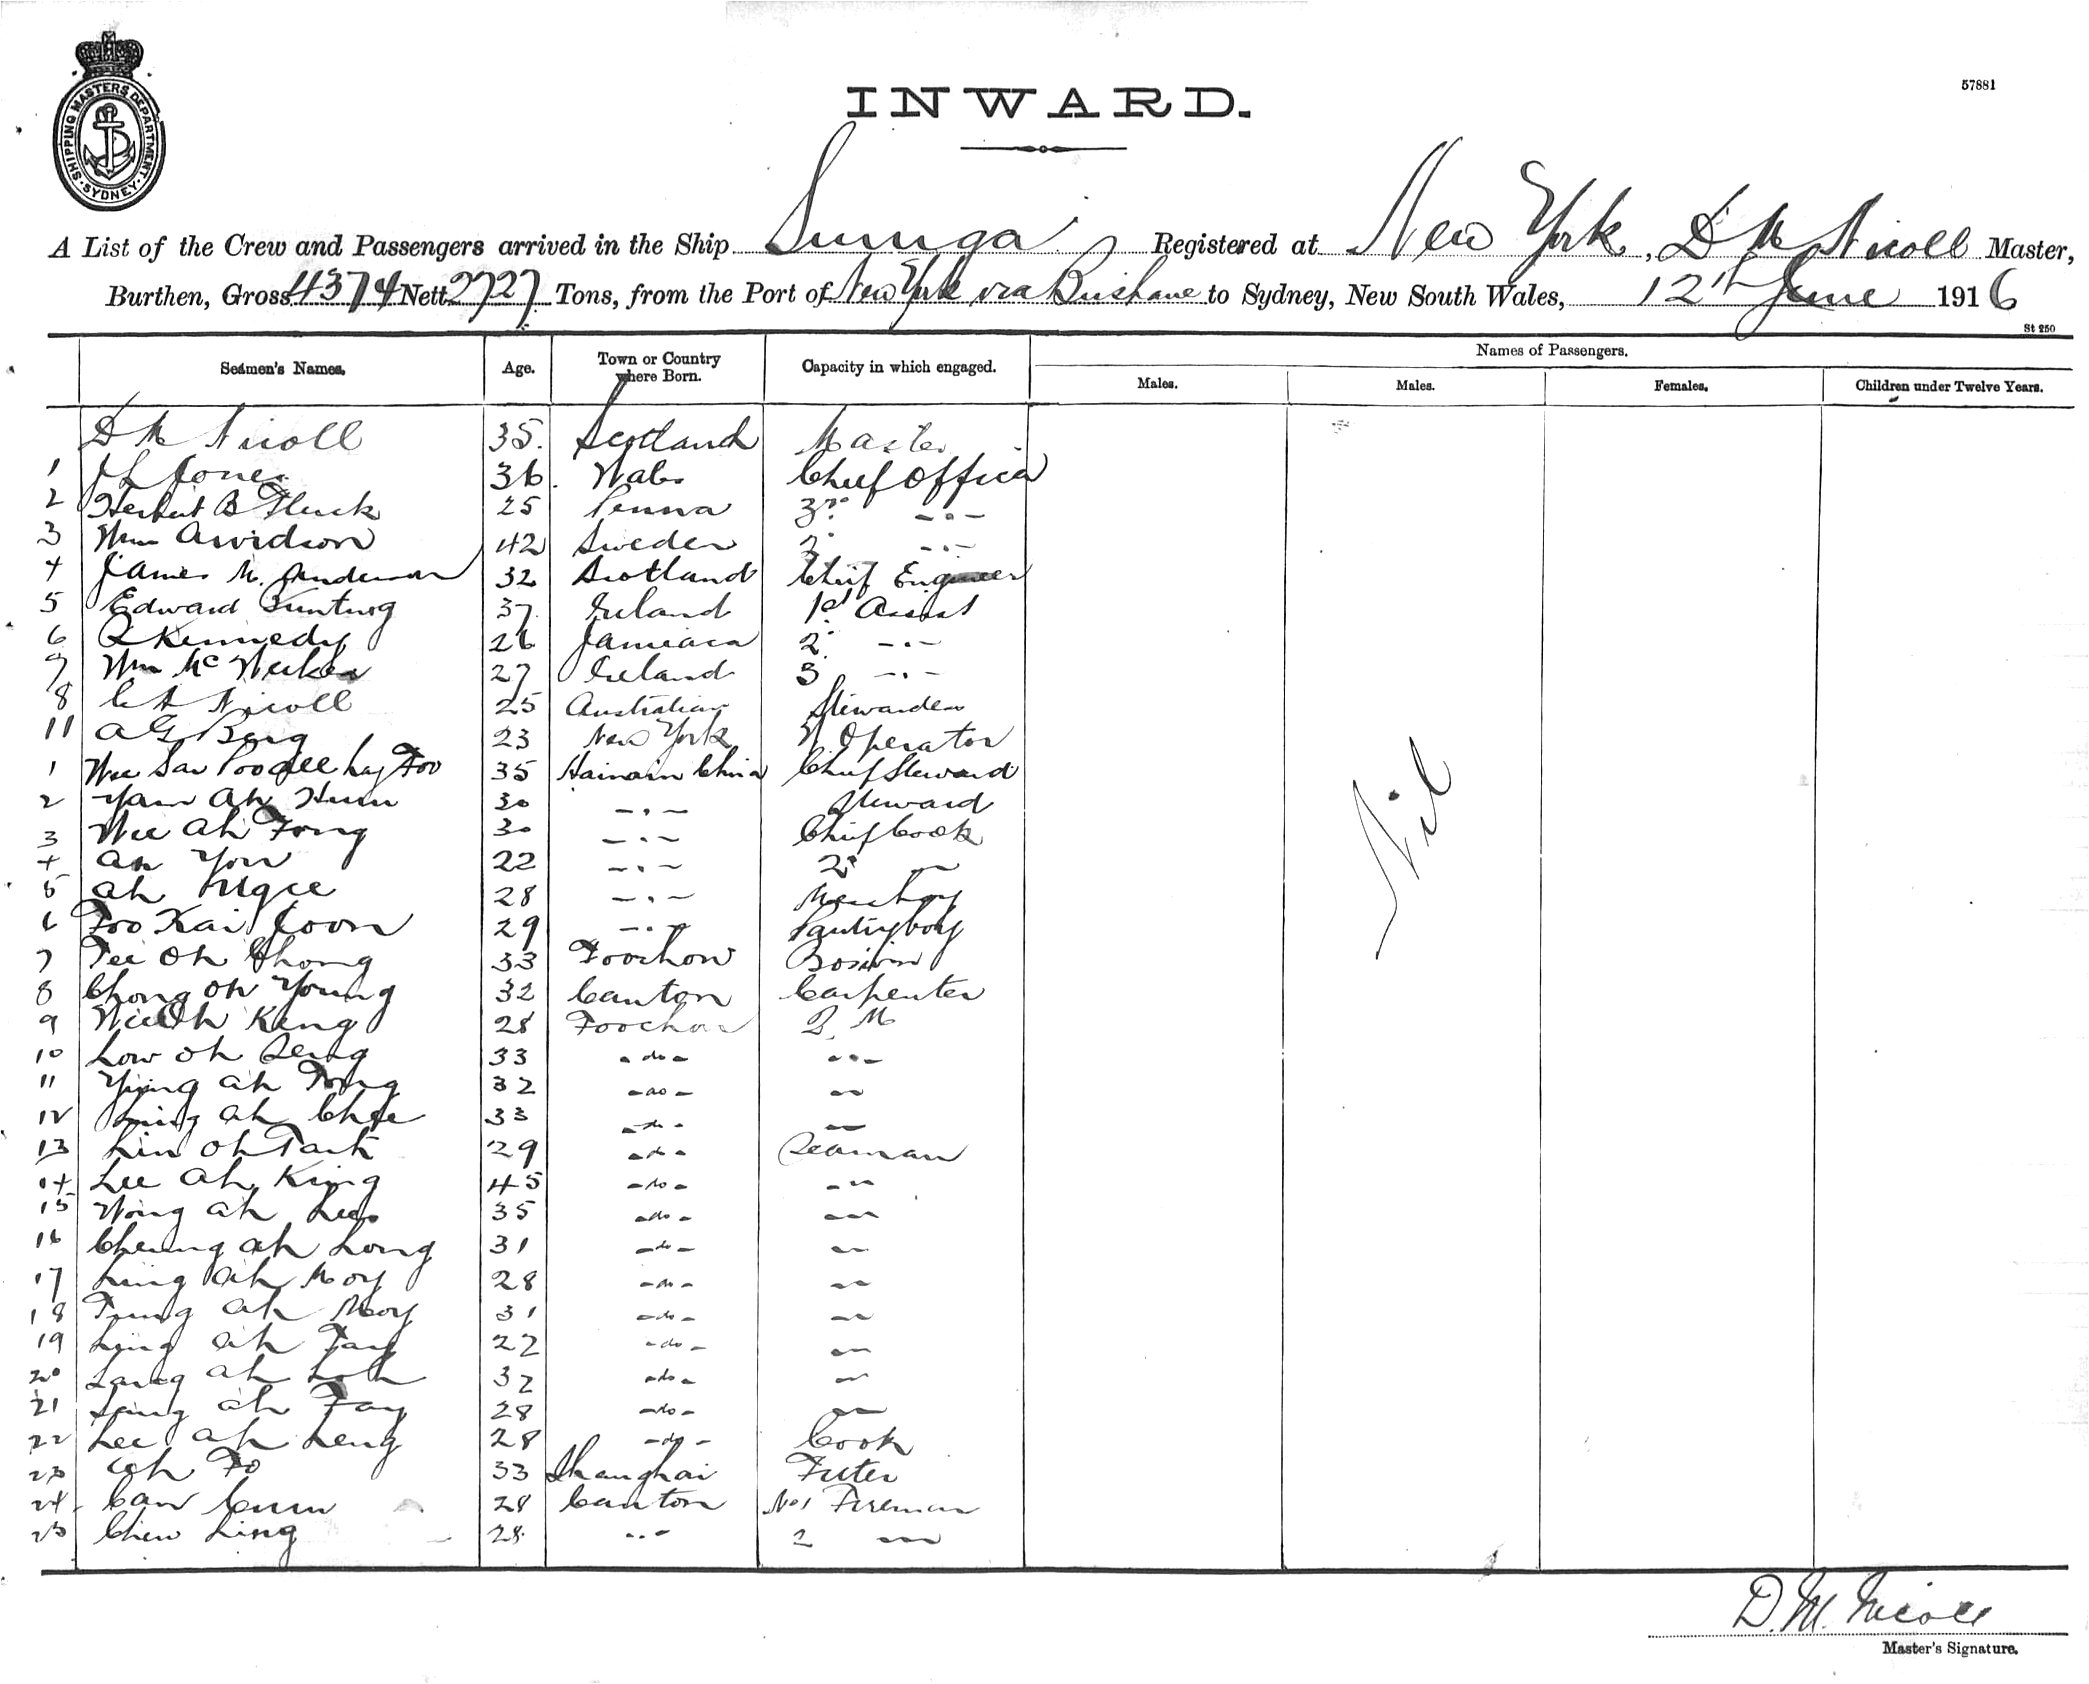 SHIPPING MASTERS DEPARTMENT SYDNEY
57881
INWARD.
A List of the Crew and Passengers arrived in the Ship Registered at New York, D M Nicoll Master,
Burthen, Gross 4374 Nett 2727 Tons, from the Port of New York via Brisbane to Sydney, New South Wales, 12th June 1916
St 250
Seamen's Names. Age. Town or Country where Born. Capacity in which engaged. Names of Passengers.
Males. Males. Females. Children under Twelve Years.
D M Nicoll 35. Scotland Master
1 J L Jones 36. Wales Chief Officer
2 Herbert B Fluck 25 Penna 3rd -"-
3 Wm Arvidson 42 Sweden 2 -"-
4 James M. Anderson 32 Scotland Chief Engineer
5 Edward 37. Ireland 1st Assist
6 R Kennedy 26 Jamiaca 2 -"-
7 Wm Mc 27 Ireland 3 -"-
8 C A Nicoll 25 Australian Stewardess
11 A G Berg 23 New York W Operator
1 Wee Sau Foo 35 Hainam China Chief Steward
2 Yam Ah Hum 30 -"- Steward
3 Wee Ah Fong 30 -"- Chief Cook
4 Ah You 22 -"- 2d "
5 Ah Ngee 28 -"- Messboy
6 Foo Kai Joon 29 -"- Pantryboy
7 Tee Oh Chong 33 Foochow Bosun
8 Chong Oh Young 32 Canton Carpenter
9 Wee Oh Keng 28 Foochow Q M
10 Low Oh Seng 33 -do- -"-
11 Ying Ah Tong 32 -do- "
12 Ling Ah Chee 33 -do- "
13 Lim Oh Taik 29 -do- Seaman
14 Lee Ah King 45 -do- -"
15 Wong Ah Lee 35 -do- "
16 Cheung Ah Long 31 -do- "
17 Ling Ah Moy 28 -do- "
18 Tung Ah Moy 31 -do- "
19 Ling Ah 22 -do- "
20 Lang Ah Loh 32 -do- "
21 Ah Fay 28 -do- "
22 Lee Ah Leng 28 -do- Cook
23 Ah Fo 33 Shanghai Fitter
24 Can Cum 28 Canton No 1 Fireman
25 Chew Ling 28. -"- 2 "
Nil
D. M. Nicoll
Master's Signature.